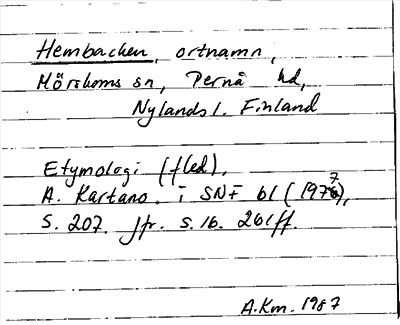 Hembacken, ortnamn,
Mörskoms sn, Pernå hd,
Nylands l. Finland
Etymologi (fled).
A. Kartano. i SNF 61 (1977),
S. 207. Jfr. s. 16. 261ff.
A.Km. 1987